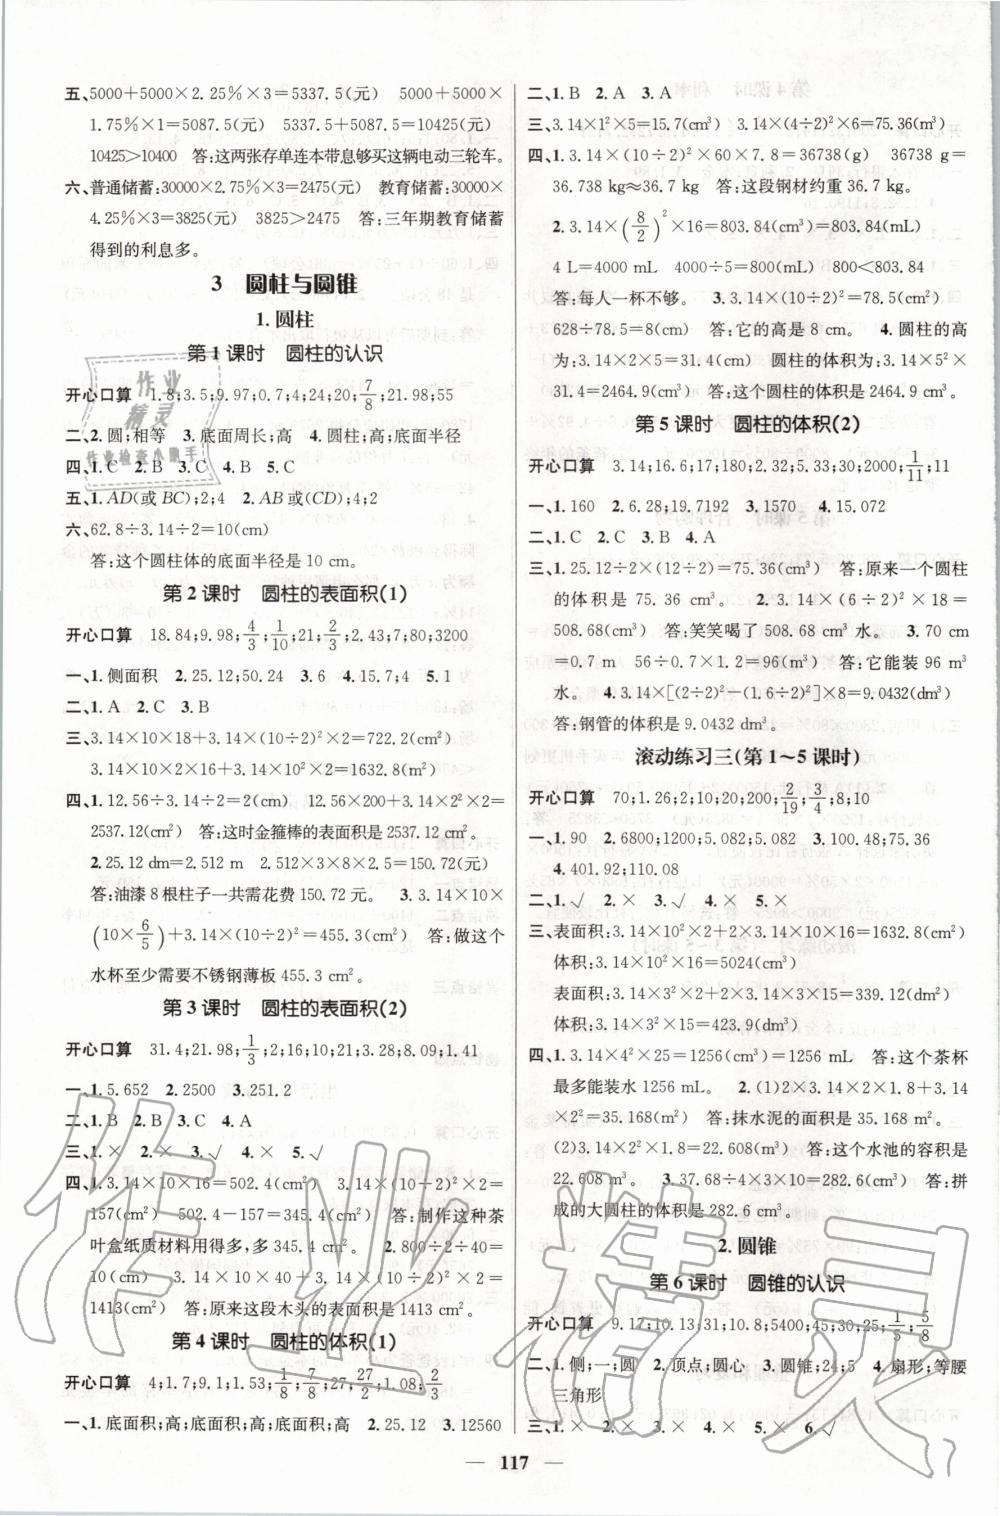 五、5000+5000×2.25%×3=5337.5(元) 5000+5000
×1.75%×1=5087.5(元) 5337.5+5087.5=10425(元)
10425>10400 答:这两张存单连本带息够买这辆电动三轮车。
六、普通储蓄:30000×2.75%×3=2475(元) 教育储蓄:30000×
4.25%×3=3825(元) 3825>2475 答:三年期教育储蓄
得到的利息多。
3 圆柱与圆锥
1.圆柱
第1课时 圆柱的认识
开心口算 1.8;3.5;9.97;0.7;4;24;20;7/8;21.98;55
二、2.圆;相等 3.底面周长;高 4.圆柱;高;底面半径
四、1.C 2.B 3.C 4.B 5.C
五、1.AD(或BC);2;4 2.AB(或CD);4;2
六、62.8÷3.14÷2=10(cm)
答:这个圆柱体的底面半径是10 cm。
第2课时 圆柱的表面积(1)
开心口算 18.84;9.98;4/3;1/10;21;2.43;7;80;3200
一、1.侧面积 2.25.12;50.24 3.6 4.15.7;4 5.1
二、1.A 2.C 3.B
三、3.14×10×18+3.14×(10÷2)²×2=722.2(cm²)
3.14×10×2×16+3.14×10²×2=1632.8(m²)
四、1.12.56÷3.14÷2=2(cm) 12.56×200+3.14×2²×2=
2537.12(cm²) 答:这时金箍棒的表面积是2537.12 cm²。
2.25.12 dm=2.512 m 2.512×2.5×8×3=150.72(元)
答:油漆8根柱子一共需花费150.72元。 3.3.14×10×
(10×6/5)+3.14×(10÷2)²=455.3(cm²) 答:做这个
水杯至少需要不锈钢薄板455.3 cm²。
第3课时 圆柱的表面积(2)
开心口算 31.4;21.98;1/3;2;16;10;21;3.28;8.09;1.41
一、1.5.652 2.2500 3.251.2
二、1.A 2.B 3.C 4.A
三、1.× 2.× 3.√ 4.× 5.√
四、1.3.14×10×16=502.4(cm²) 3.14×(10÷2)²×2=
157(cm²) 502.4-157=345.4(cm²) 答:制作这种茶
叶盒纸质材料用得多,多345.4 cm²。 2.800÷2÷40=
10(cm) 3.14×10²×2+3.14×10×2×40÷2+800=
1413(cm²) 答:原来这段木头的表面积是1413 cm²。
第4课时 圆柱的体积(1)
开心口算 4;1.7;9.1;1.53;1/8;7/8;27;27/2;1.21;2
一、1.底面积;高;底面积;高;底面积;高 2.25.12 3.12560
二、1.B 2.A 3.A
三、3.14×1²×5=15.7(cm³) 3.14×(4÷2)²×6=75.36(m³)
四、1.3.14×(10÷2)²×60×7.8=36738(g) 36738 g=
36.738 kg≈36.7 kg 答:这段钢材约重36.7 kg。
2.3.14×(8/2)²×16=803.84(cm³)=803.84(mL)
4 L=4000 mL 4000÷5=800(mL) 800<803.84
答:每人一杯不够。 3.3.14×(10÷2)²=78.5(cm²)
628÷78.5=8(cm) 答:它的高是8 cm。 4.圆柱的高
为:3.14×2×5=31.4(cm) 圆柱的体积为:3.14×5²×
31.4=2464.9(cm³) 答:这个圆柱的体积是2464.9 cm³。
第5课时 圆柱的体积(2)
开心口算 3.14;16.6;17;180;2.32;5.33;30;2000;1/11;11
一、1.160 2.6.28;19.7192 3.1570 4.15.072
二、1.C 2.C 3.B 4.A
三、1.25.12÷2×(12÷2)=75.36(cm³) 答:原来一个圆柱
的体积是75.36 cm³。 2.3.14×(6÷2)²×18=
508.68(cm³) 答:笑笑喝了508.68 cm³水。 3.70 cm
=0.7 m 56÷0.7×1.2=96(m³) 答:它能装96 m³
水。 4.3.14×[(2÷2)²-(1.6÷2)²]×8=9.0432(dm³)
答:钢管的体积是9.0432 dm³。
滚动练习三(第1~5课时)
开心口算 70;1.26;2;10;20;200;2/19;3/4;8;10
一、1.90 2.6800;1200;5.082;5.082 3.100.48;75.36
4.401.92;110.08
二、1.√ 2.× 3.× 4.× 5.×
三、表面积:3.14×10²×2+2×3.14×10×16=1632.8(cm²)
体积:3.14×10²×16=5024(cm³)
表面积:3.14×3²×2+2×3.14×3×15=339.12(dm²)
体积:3.14×3²×15=423.9(dm³)
四、1.3.14×4²×25=1256(cm³)=1256 mL 答:这个茶杯
最多能装水1256 mL。 2.(1)2×3.14×2×1.8+3.14
×2²=35.168(m²) 答:抹水泥的面积是35.168 m²。
(2)3.14×2²×1.8=22.608(m³) 答:这个水池的容积是
22.608 m³。 3.37.68÷2×15=282.6(cm³) 答:拼
成的大圆柱的体积是282.6 cm³。
2.圆锥
第6课时 圆锥的认识
开心口算 9.17;10.13;31;10.8;5400;45;30;25;1/5;5/8
二、1.侧;一;圆 2.顶点;圆心 3.圆锥;24;5 4.扇形;等腰
三角形
三、1.× 2.× 3.× 4.× 5.× 6.√
— 117 —
作业
精灵
作业检查小助手
作业精灵